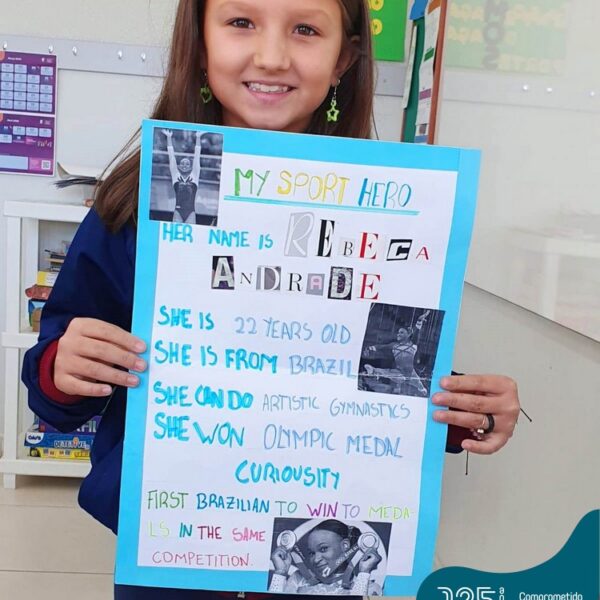 MY SPORT HERO
HER NAME IS REBECA
ANDRADE
SHE IS 22 YEARS OLD
SHE IS FROM BRAZIL
SHE CAN DO ARTISTIC GYMNASTICS
SHE WON OLYMPIC MEDAL
CURIOUSITY
FIRST BRAZILIAN TO WIN TO MEDA-
LS IN THE SAME
COMPETITION.
DETETIVE
125
Comprometido